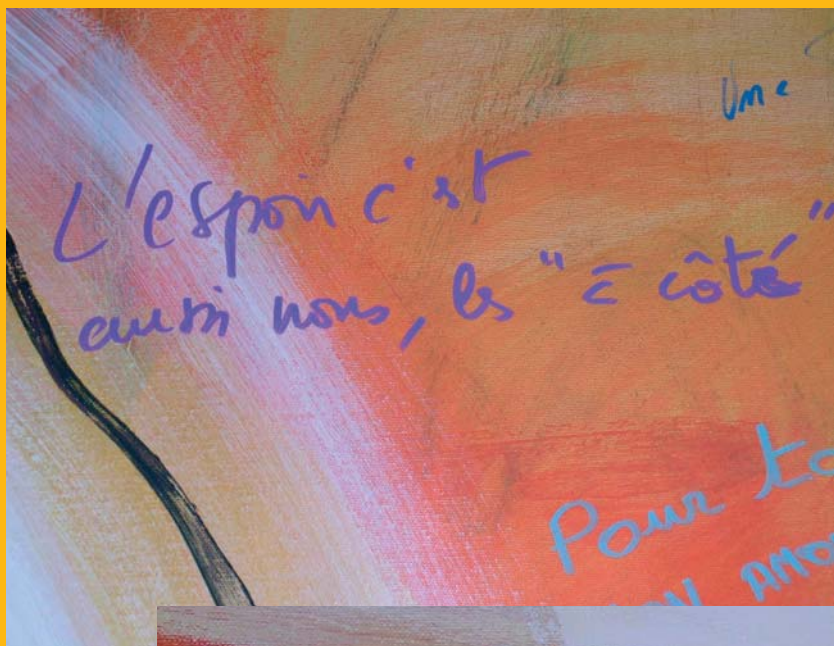 Une
L'espoir c'est
aussi nous, les "à côté"
Pour to
ON AMO